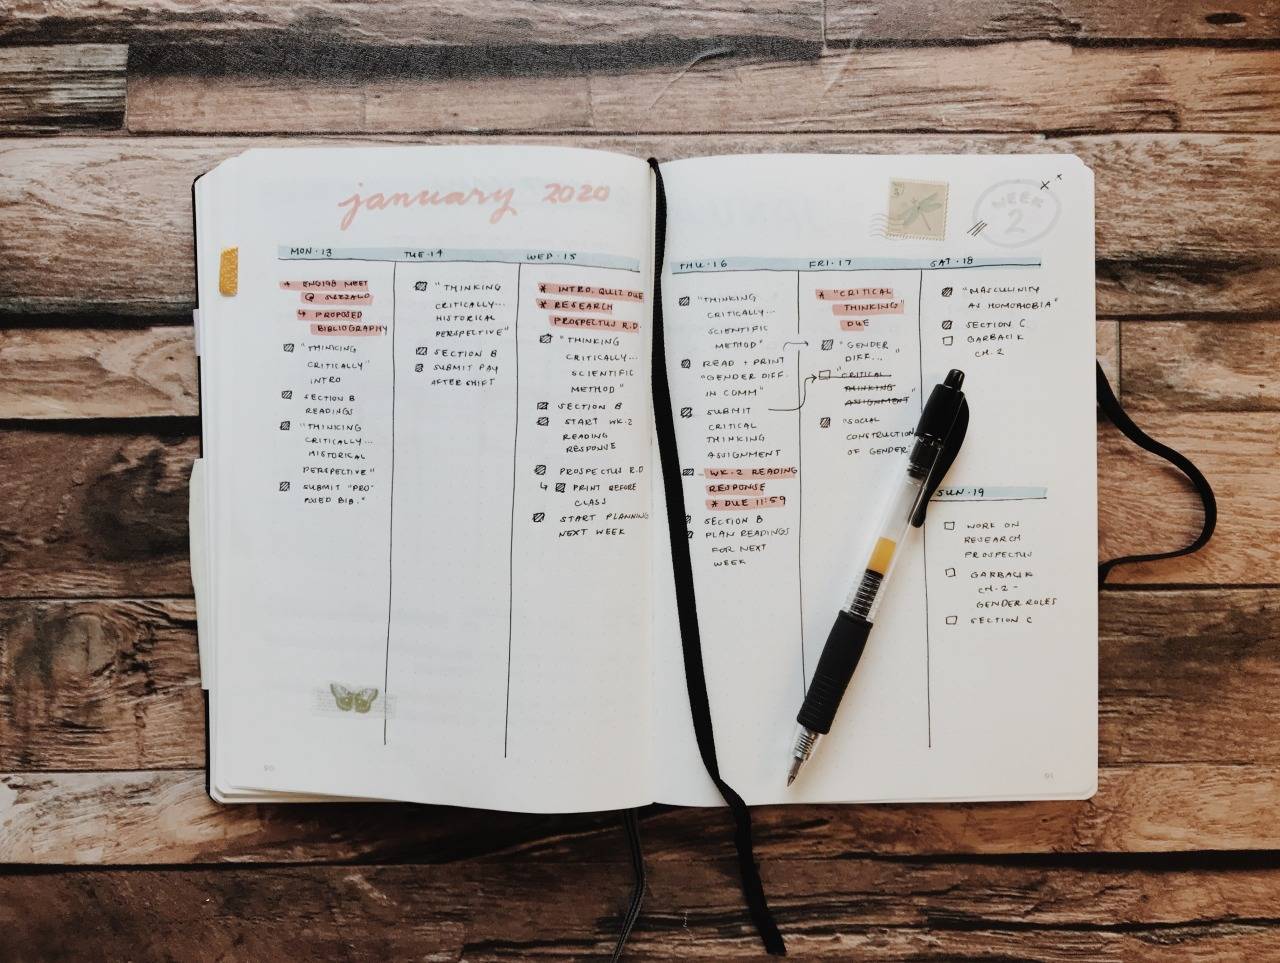 january 2020
MON·13
* ENGL98 MEET
@ SUZZALO
↳ PROPOSED
BIBLIOGRAPHY
"THINKING
CRITICALLY"
INTRO
SECTION B
READINGS
"THINKING
CRITICALLY...
HISTORICAL
PERSPECTIVE"
SUBMIT "PRO-
POSED BIB."
TUE·14
"THINKING
CRITICALLY...
HISTORICAL
PERSPECTIVE"
SECTION B
SUBMIT PAY
AFTER SHIFT
WED·15
* INTRO. QUIZ DUE
* RESEARCH
PROSPECTUS R.D.
"THINKING
CRITICALLY...
SCIENTIFIC
METHOD"
SECTION B
START WK.2
READING
RESPONSE
PROSPECTUS R.D
↳ PRINT BEFORE
CLASS
START PLANNING
NEXT WEEK
90
WEEK
2
THU·16
"THINKING
CRITICALLY...
SCIENTIFIC
METHOD"
READ + PRINT
"GENDER DIFF.
IN COMM"
SUBMIT
CRITICAL
THINKING
ASSIGNMENT
WK.2 READING
RESPONSE
* DUE 11:59
SECTION B
PLAN READINGS
FOR NEXT
WEEK
FRI·17
* "CRITICAL
THINKING"
DUE
"GENDER
DIFF..."
"CRITICAL
THINKING
ASSIGNMENT"
"SOCIAL
CONSTRUCTION
OF GENDER"
SAT·18
"MASCULINITY
AS HOMOPHOBIA"
SECTION C
GARBACIK
CH.2
SUN·19
WORK ON
RESEARCH
PROSPECTUS
GARBACIK
CH.2-
GENDER ROLES
SECTION C
91